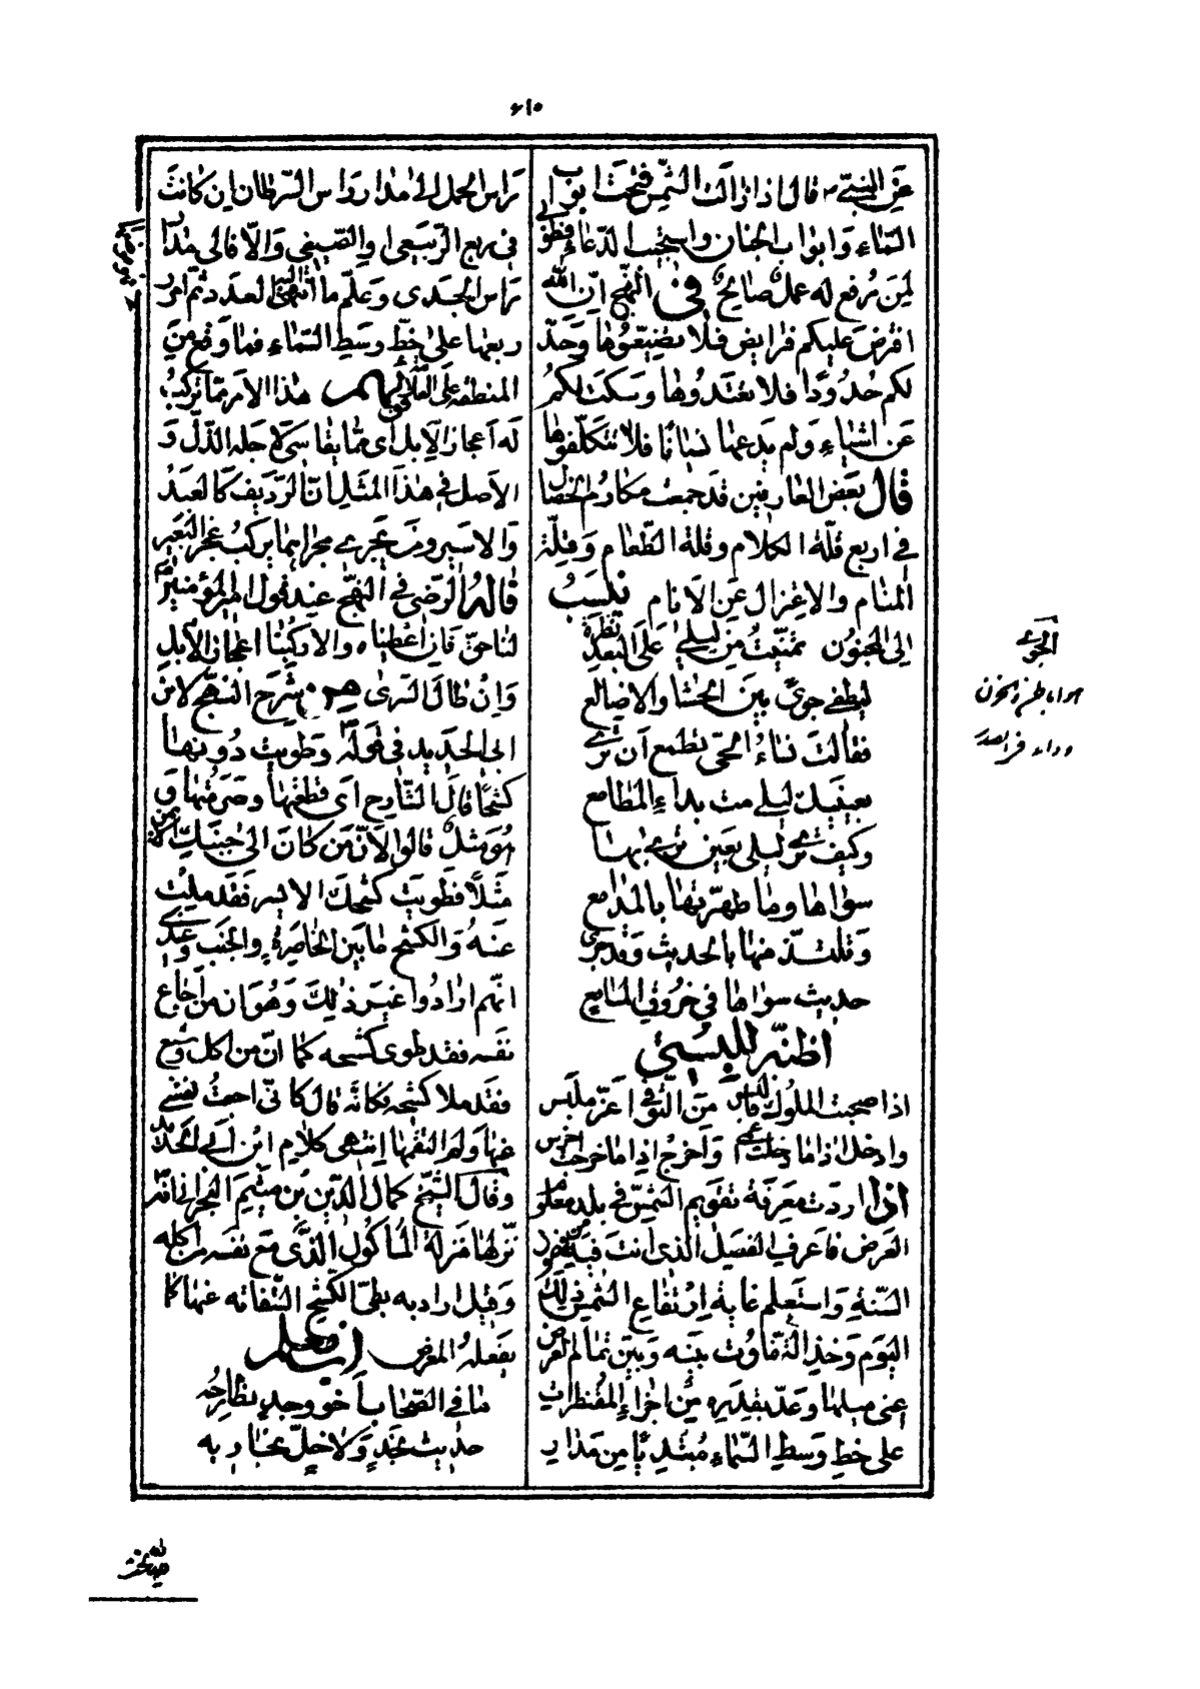 ٦١٥
عن النبي ص قال اذا زالت الشمس فتحت ابواب
السماء وابواب الجنان واستجيب الدعاء فطوبى
لمن رفع له عمل صالح في النهج ان الله
افترض عليكم فرايض فلا تضيعوها وحد
لكم حدودا فلا تعتدوها وسكت لكم
عن اشياء ولم يدعها نسيانا فلا تتكلفوها
قال بعض العارفين قد جمعت مكارم الخصال
في اربع قلة الكلام وقلة الطعام وقلة
المنام والاعتزال عن الانام ينسب
الى المجنون تمنيت من ليلى على البعد نظرة
ليطفى جوى بين الحشا والاضالع
فقالت نساء الحى تطمع ان ترى
بعينيك ليلى مت بداء المطامع
وكيف ترى ليلى بعين ترى بها
سواها وما طهرتها بالمدامع
وتلتذ منها بالحديث وقد جرى
حديث سواها في خروق المسامع
اظنه للبستي
اذا صحبت الملوك فالبس من التوقي اعز ملبس
وادخل اذا ما دخلت اعمى واخرج اذا ما خرجت اخرس
اذا اردت معرفة تقويم الشمس في بلد معلوم
العرض فاعرف الفصل الذى انت فيه من فصول
السنة واستعلم غاية ارتفاع الشمس في ذلك
اليوم وخذ التفاوت بينه وبين تمام العرض
اعنى ميلها وعد بقدره من اجزاء المقنطرات
على خط وسط السماء مبتدئا من مدار
راس الحمل الى مدار راس السرطان ان كانت
في ربع الربيعى او الصيفى والا فالى مدار
راس الجدى وعلم ما انتهى اليه العدد ثم امرر
ربعها على خط وسط السماء فما وقع من
المنطقة على العلامة هذا الامر مما تركب
له اعجاز الابل اى مما يقاسى لاجله الذل و
الاصل في هذا المثل ان الرديف كالعبد
والاسير ومن يجرى مجراهما يركب عجز البعير
قاله الرضى في النهج عند قول امير المؤمنين
لنا حق فان اعطيناه والا ركبنا اعجاز الابل
وان طال السرى من شرح النهج لابن
ابى الحديد في قوله وطويت دونها
كشحا قال الشارح اى قطعتها وصرمتها و
هو مثل قالوا لان من كان الى جنبك الايمن
مثلا فطويت كشحك الايسر فقد ملت
عنه والكشح ما بين الخاصرة والجنب وعندى
انهم ارادوا غير ذلك وهو ان من اجاع
نفسه فقد طوى كشحه كما ان من اكل وشبع
فقد ملا كشحه فكانه قال كانى اجعت نفسى
عنها ولم القمها انتهى كلام ابن ابى الحديد
وقال الشيخ كمال الدين بن ميثم البحرانى انه
نزلها منزلة الماكول الذى منع نفسه من اكله
وقيل اراد به بطى الكشح التفاته عنها كما
يفعله المعرض ابن معلم
ما في الصحاب اخو وجد نطارحه
حديث نجد ولا خل نجاريه
الجوى